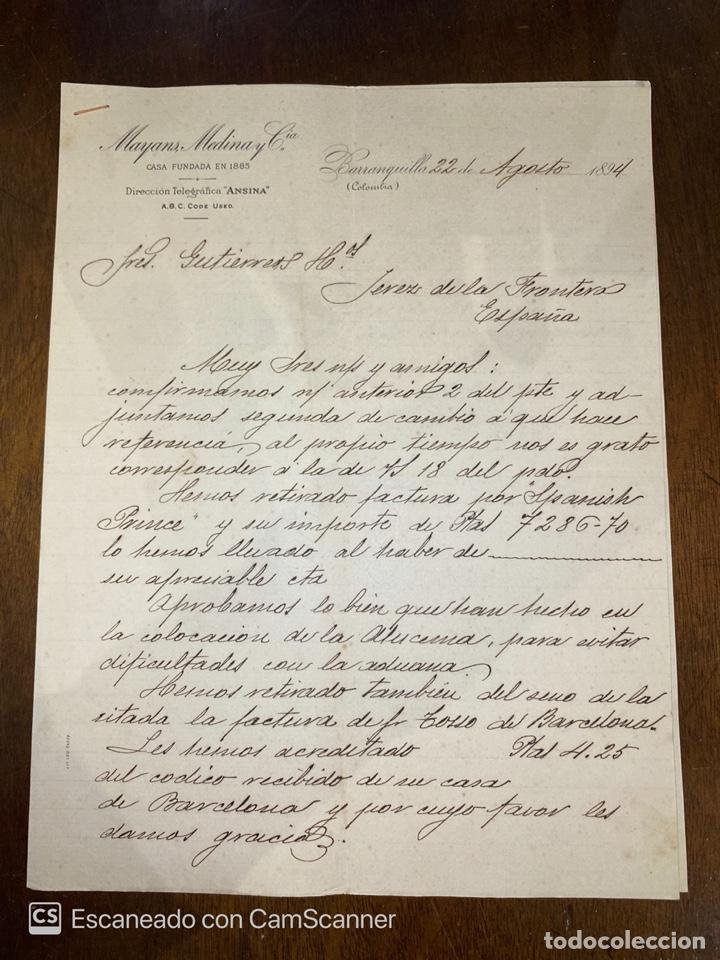 Mayans, Medina y Cia.
CASA FUNDADA EN 1885
Dirección Telegráfica "ANSINA"
A.B.C. CODE USED.
Barranquilla 22 de Agosto 1894
(Colombia)
Sres. Gutierrez Hos.
Jerez de la Frontera
España
Muy Sres n/s y amigos:
confirmamos n/ anterior 2 del pte y ad-
juntamos segunda de cambio á que hace
referencia, al propio tiempo nos es grato
corresponder á la de Vs 18 del pdo.
Hemos retirado factura por "Spanish
Prince" y su importe de Ptas 7286-70
lo hemos llevado al haber de
su apreciable cta
Aprobamos lo bien que han hecho en
la colocacion de la Alucema, para evitar
dificultades con la aduana.
Hemos retirado también del seno de la
citada la factura de fr Tosso de Barcelona.
Les hemos acreditado Ptas 4.25
del codico recibido de su casa
de Barcelona y por cuyo favor les
damos gracias.
CS Escaneado con CamScanner
todocoleccion